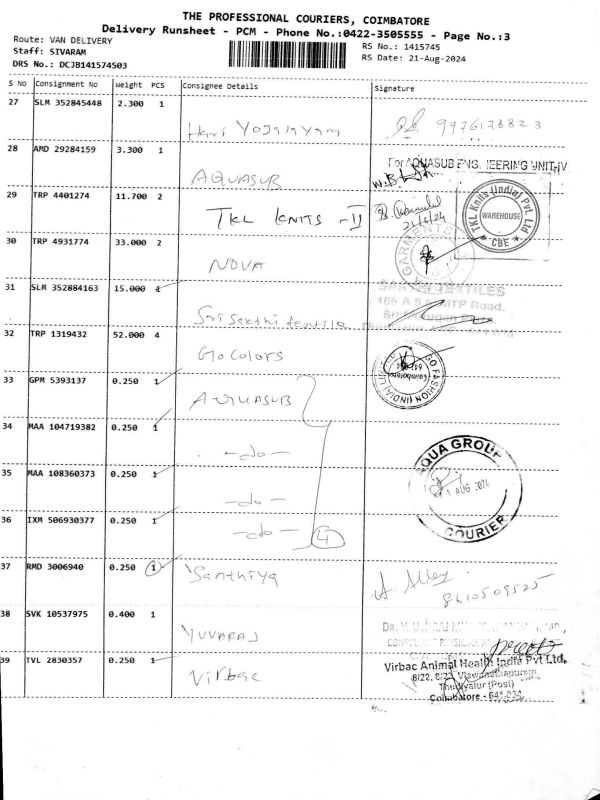 THE PROFESSIONAL COURIERS, COIMBATORE
Delivery Runsheet - PCM - Phone No.:0422-3505555 - Page No.:3
Route: VAN DELIVERY
Staff: SIVARAM
DRS No.: DCJB141574503
RS No.: 1415745
RS Date: 21-Aug-2024
S No Consignment No Weight PCS Consignee Details Signature
27 SLM 352845448 2.300 1
Hari Yojalayam 9976178823
28 AMD 29284159 3.300 1
AQUASUB
For AQUASUB ENG. IEERING UNIT-IV
29 TRP 4401274 11.700 2
TKL KNITS - II
21/8/24
TKL Knits (India) Pvt. Ltd
WAREHOUSE
* CBE *
30 TRP 4931774 33.000 2
NOVA
GARMENTS
31 SLM 352884163 15.000 1
Sri Sakthi textile
TEXTILES
32 TRP 1319432 52.000 4
Go Colors
GO FASHION (INDIA)
Coimbatore
33 GPM 5393137 0.250 1
AQUASUB
34 MAA 104719382 0.250 1
-do-
AQUA GROUP
AUG 2024
COURIER
35 MAA 108360373 0.250 1
-do-
36 IXM 506930377 0.250 1
-do- 4
37 RMD 3006940 0.250 1
Santhiya
8610509525
38 SVK 10537975 0.400 1
YUVARAJ
39 TVL 2830357 0.250 1
Virbac
Virbac Animal Health India Pvt Ltd,
8/22, 8/23 Viswanathapuram,
Thudiyalur (Post)
Coimbatore - 641 034